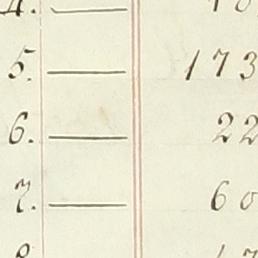 5. — 173
6. — 22
7. — 60